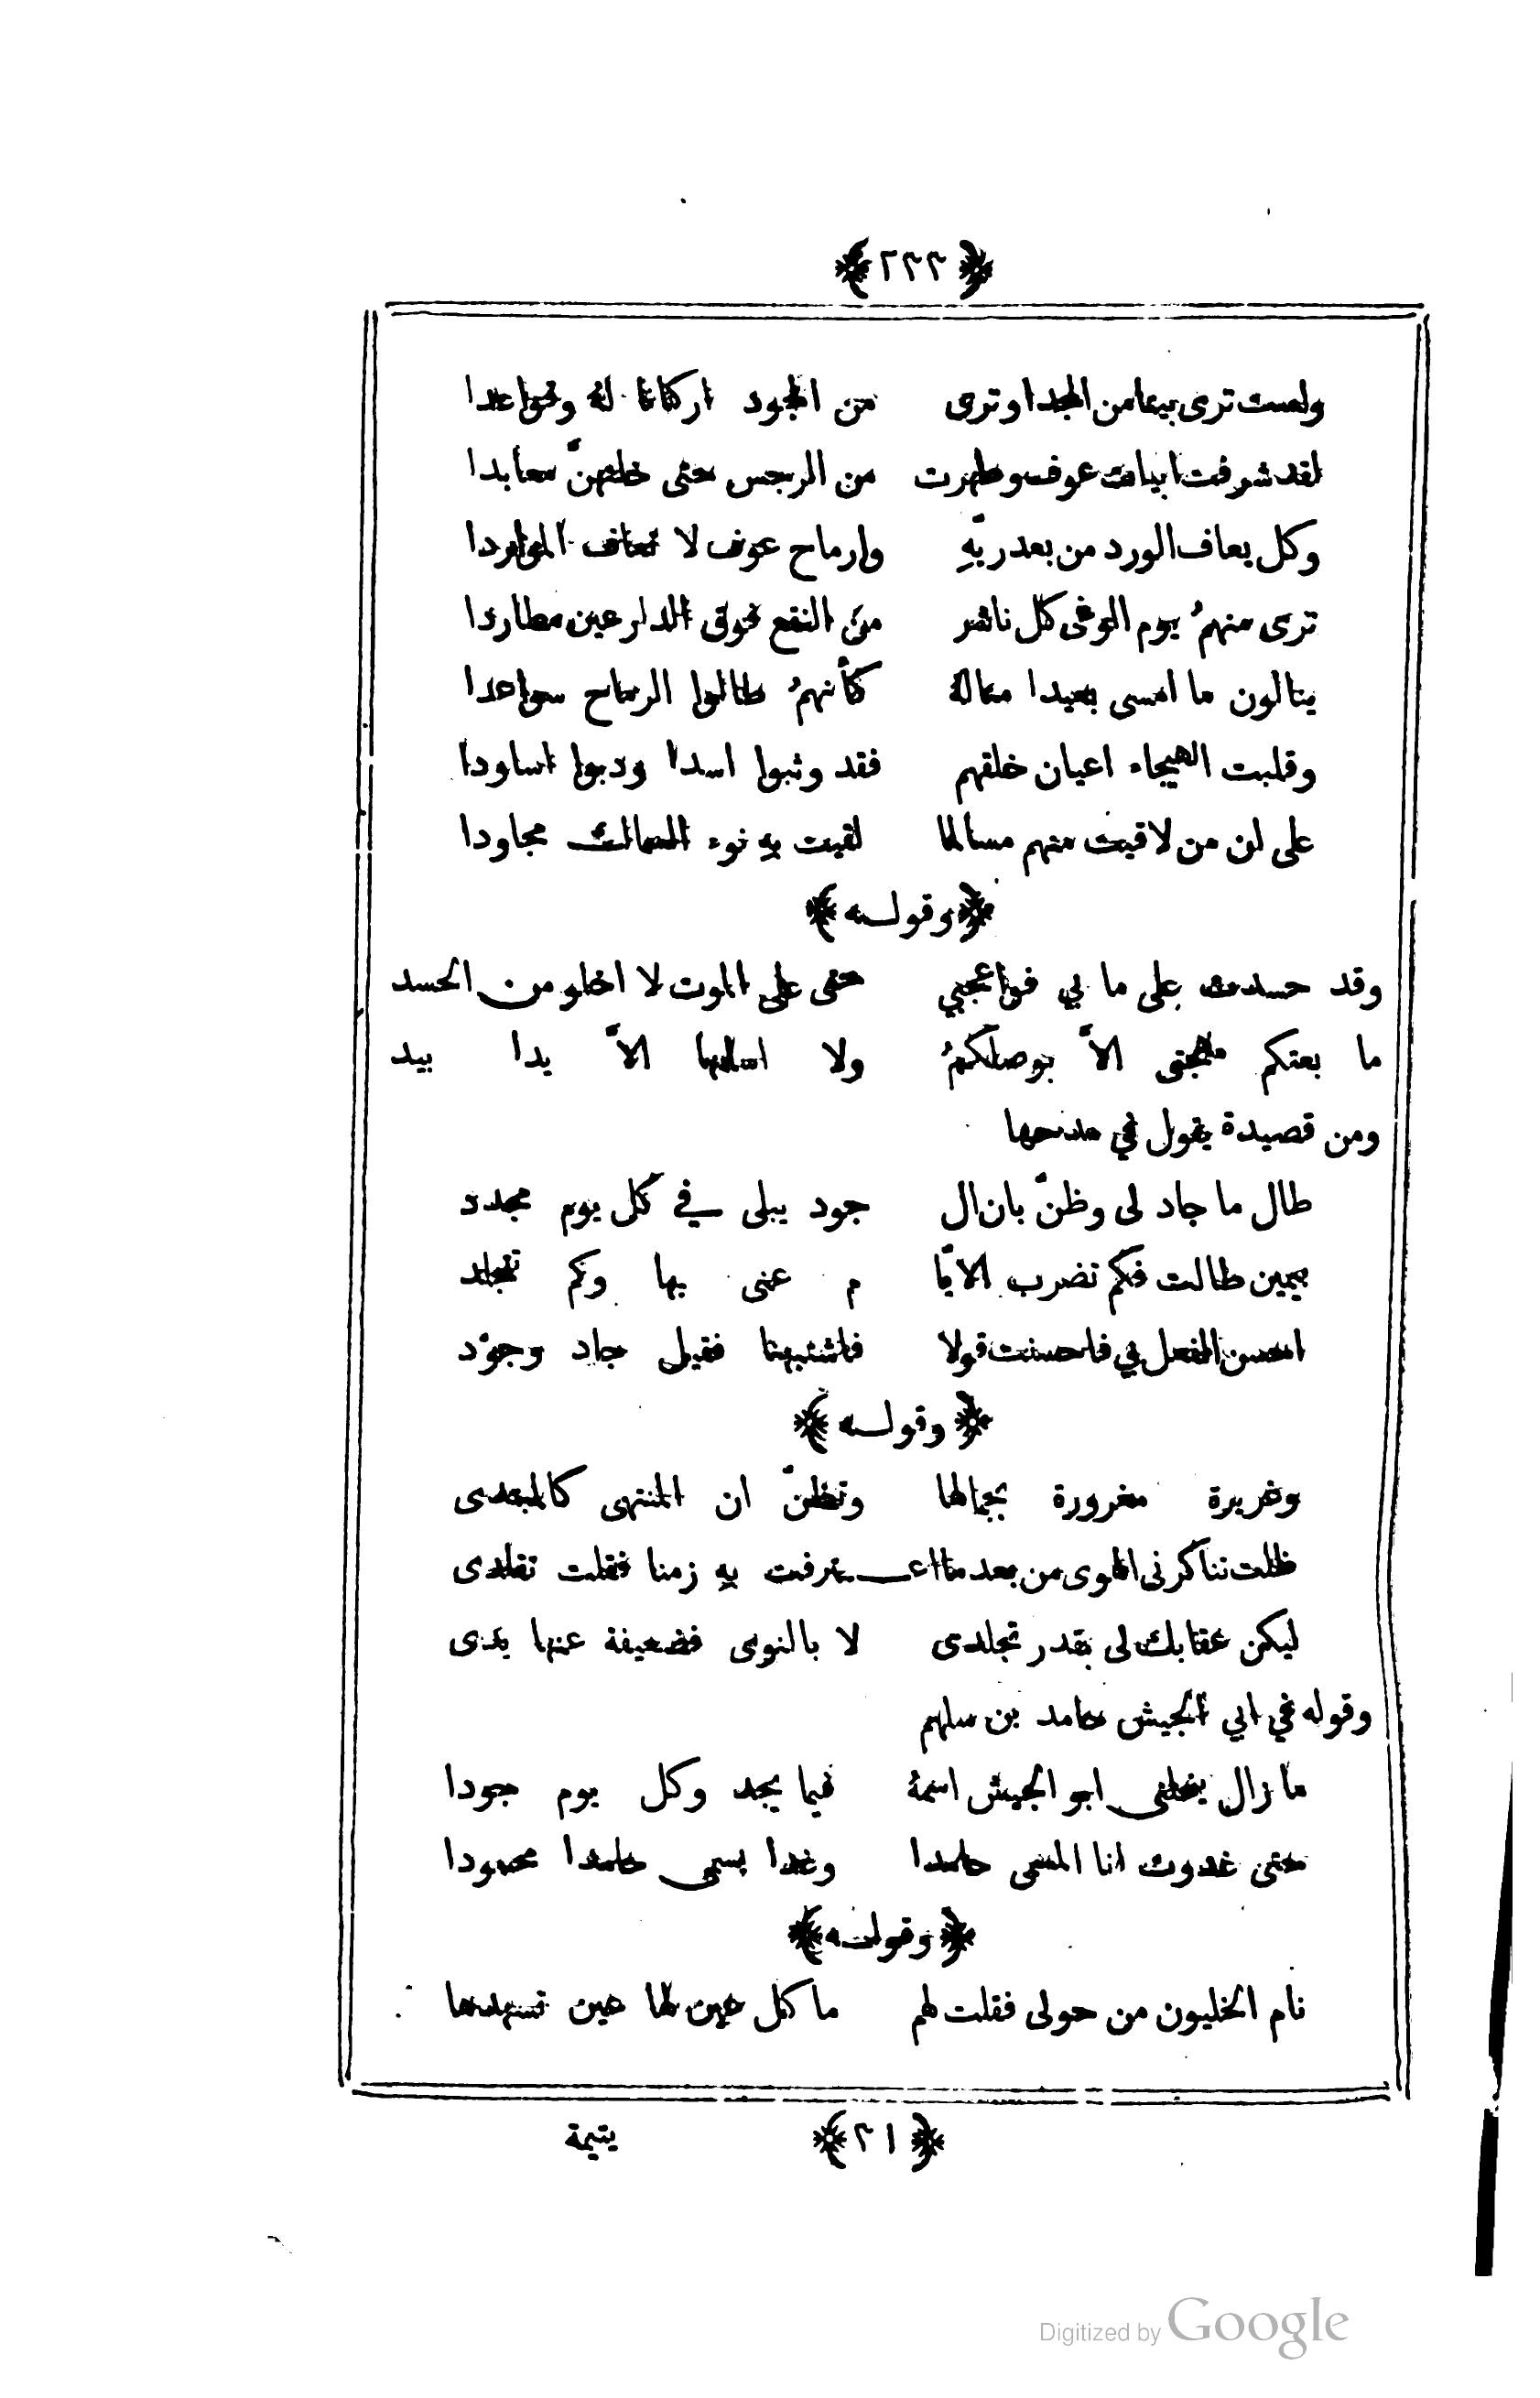 ﴿٢٢٢﴾
ولست ترى بيتا من المجد او ترى من الجود اركانا لهُ وقواعدا
لقد شرفت ابيات عوف وطهرت من الرجس حتى خلتهنّ معابدا
وكل يعاف الورد من بعد ريّهِ وارماح عوف لا تعاف المواردا
ترى منهمُ يوم الوغى كل ناشر من النقع فوق الدارعين مطاردا
ينالون ما امسى بعيدا منالهُ كأنهمُ طالوا الرماح سواعدا
وقلبت الهيجاء اعيان خلقهم فقد وثبوا اسدا ودبوا اساودا
على ان من لاقيت منهم مسالما لقيت بهِ نوء السماك مجاودا
﴿وقولـه﴾
وقد حسدت على ما بي فواعجبي حتى على الموت لا اخلو من الحسد
ما بعتكم مهجتى الاّ بوصلكمُ ولا اسلمها الاّ يدا بيد
ومن قصيدة يقول في مدحها
طال ما جاد لى وظنّ بان ال جود يبلى في كل يوم مجدد
بيمين طالت فكم تضرب الايّا م عنى بها وكم تتجلد
احسن الفعل بي فاحسنت قولا فاشتبهنا فقيل جاد وجوّد
﴿وقولـه﴾
وغريرة مغرورة بجمالها وتظنّ ان المنتهى كالمبتدى
ظلت تناكرنى الهوى من بعد ما اعـ ـترفت بهِ زمنا فقلت تقلدى
ليكن عقابك لى بقدر تجلدى لا بالنوى فضعيفة عنها يدى
وقوله في ابي الجيش حامد بن ملهم
ما زال ينحلنى ابو الجيش اسمهُ فيما يجد وكل يوم جودا
حتى غدوت انا المسمى حامدا وغدا يسمى حامدا محمودا
﴿وقولـه﴾
نام الخليون من حولى فقلت لهم ما كل عين لها عين تسهدها
﴿٢١﴾ يتيمة
Digitized by Google